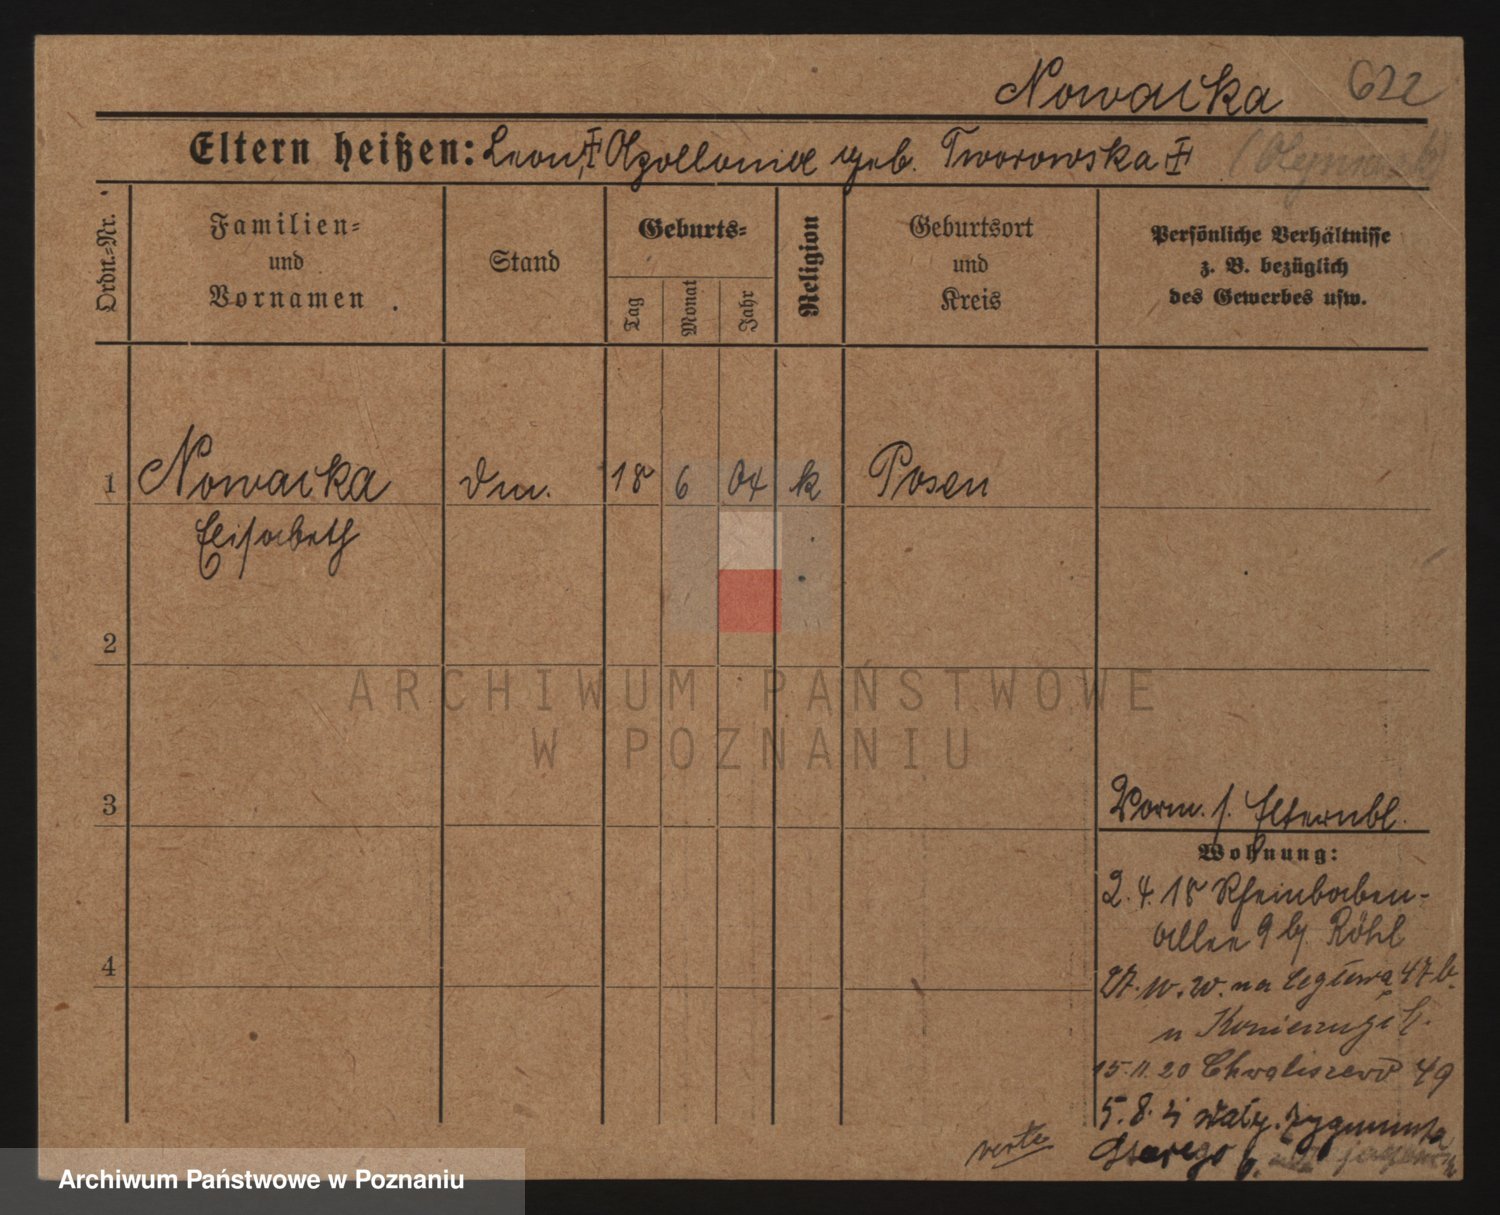 Nowacka 622
Eltern heißen: Leon, Apollonia geb. Tworowska
Ordn.-Nr.
Familien-
und
Vornamen
Stand
Geburts-
Tag
Monat
Jahr
Religion
Geburtsort
und
Kreis
Persönliche Verhältnisse
z. B. bezüglich
des Gewerbes usw.
1 Nowacka 18 6 04 k Posen
Elisabeth
2
3
4
Vorm. s. Elternbl.
Wohnung:
2.4.18 Rheinbaben-
allee 9 b/ Röhl
47
15.11.20 Chwaliszewo 49
5.8. Wały Zygmunta
Starego
verte
ARCHIWUM PAŃSTWOWE
W POZNANIU
Archiwum Państwowe w Poznaniu